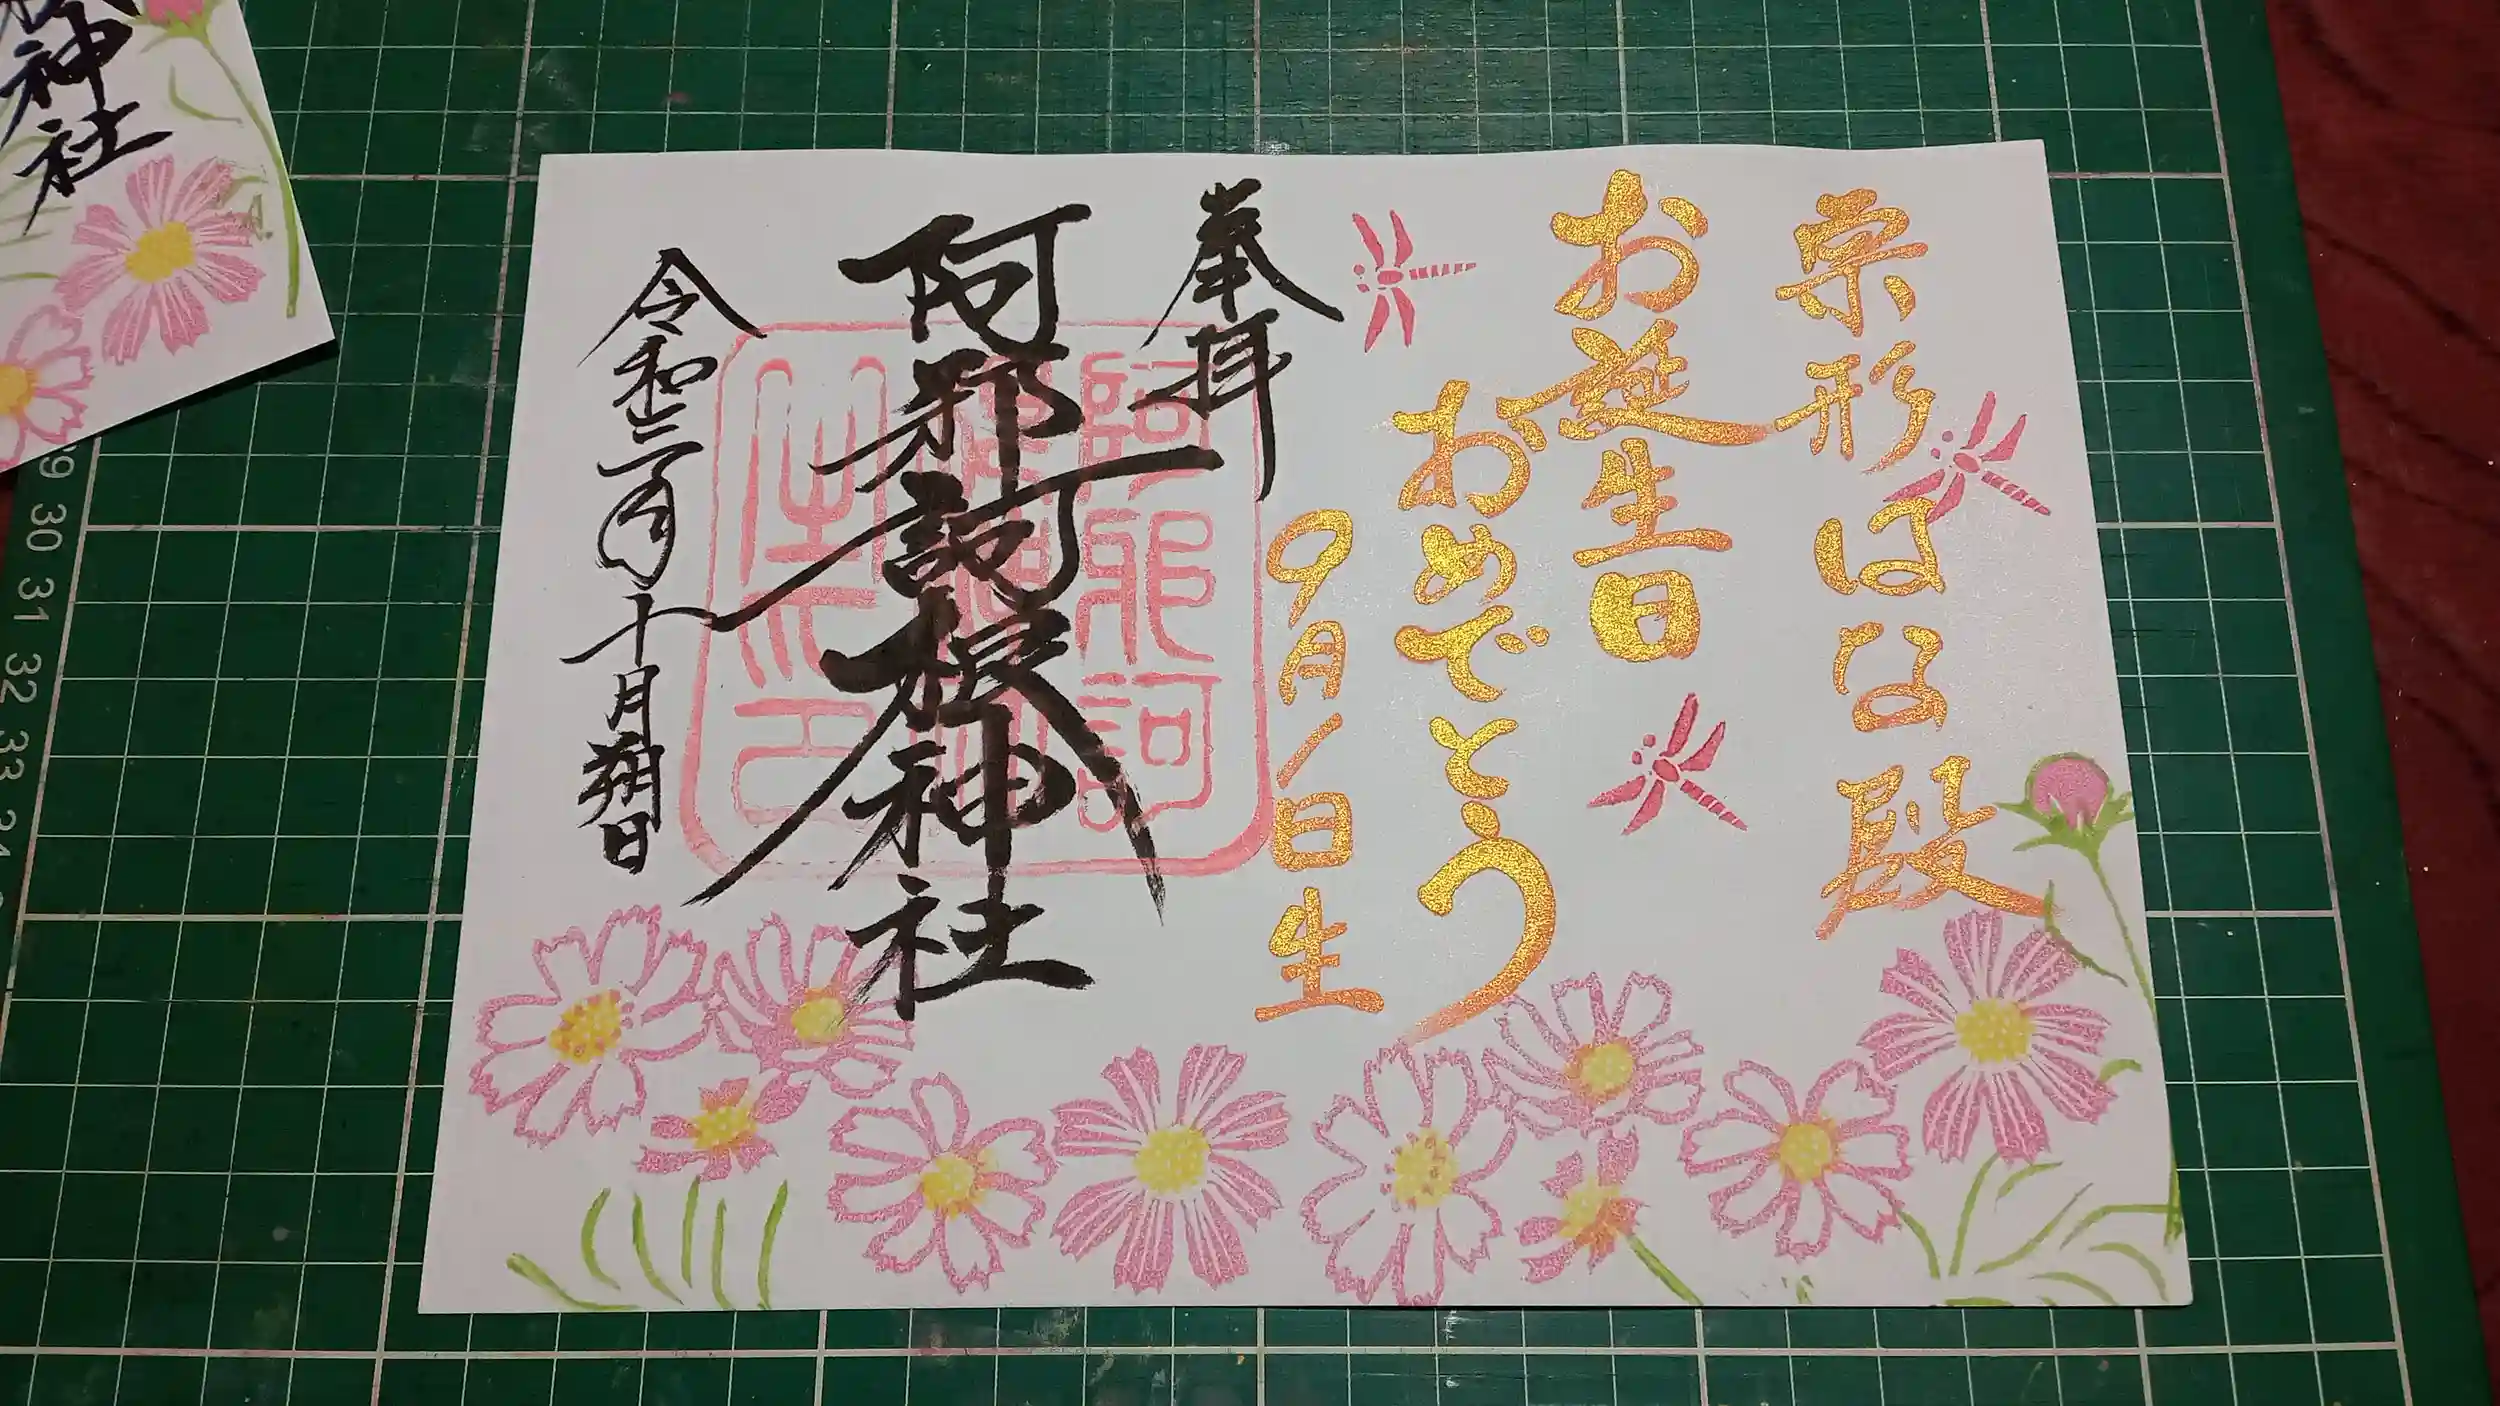 宗形はな殿
お誕生日
おめでとう
9月1日生
奉拝
阿邪訶根神社
令和三年十月朔日
神社
30
31
32
33